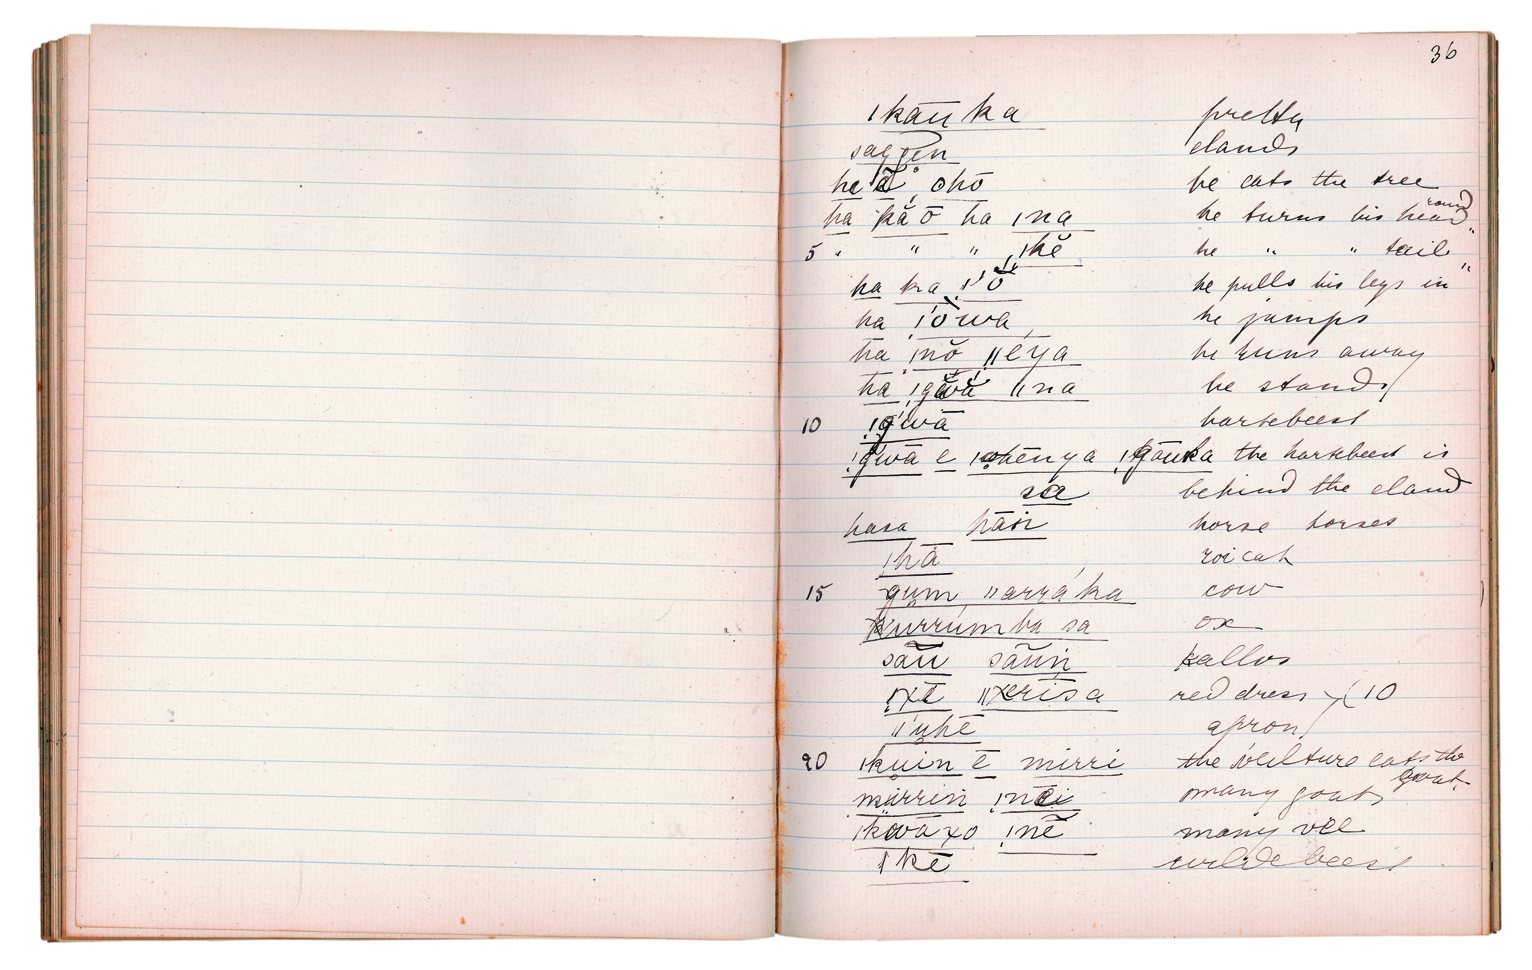 36
ǀkāuka pretty
saggen elands
ha ā, ohō he eats the tree
ha kă ō ha ǀna he turns his head round
5 " " " ǀkĕ he " " tail "
ha ka he pulls his legs in "
ha ǃōwa, he jumps
ha ǃnŏ ǁēya he runs away
ha ǀna he stands
10 ǃgwā hartebeest
ǃgwā e the hartebeest is
sa behind the eland
hasa hāṅ horse horses
ǀhā roicat
15 gum ǁarráka cow
kurrúmba sa ox
sāŭ sāuṅ kallos
ǃxē ǁxērīsa red dress 10
ǁuhē apron
20 ǀkuin ē mirri the vulture eats the goat
mirrin many goats
ǀkwāxo ǃnĕ many vee
ǀkē wildebeest